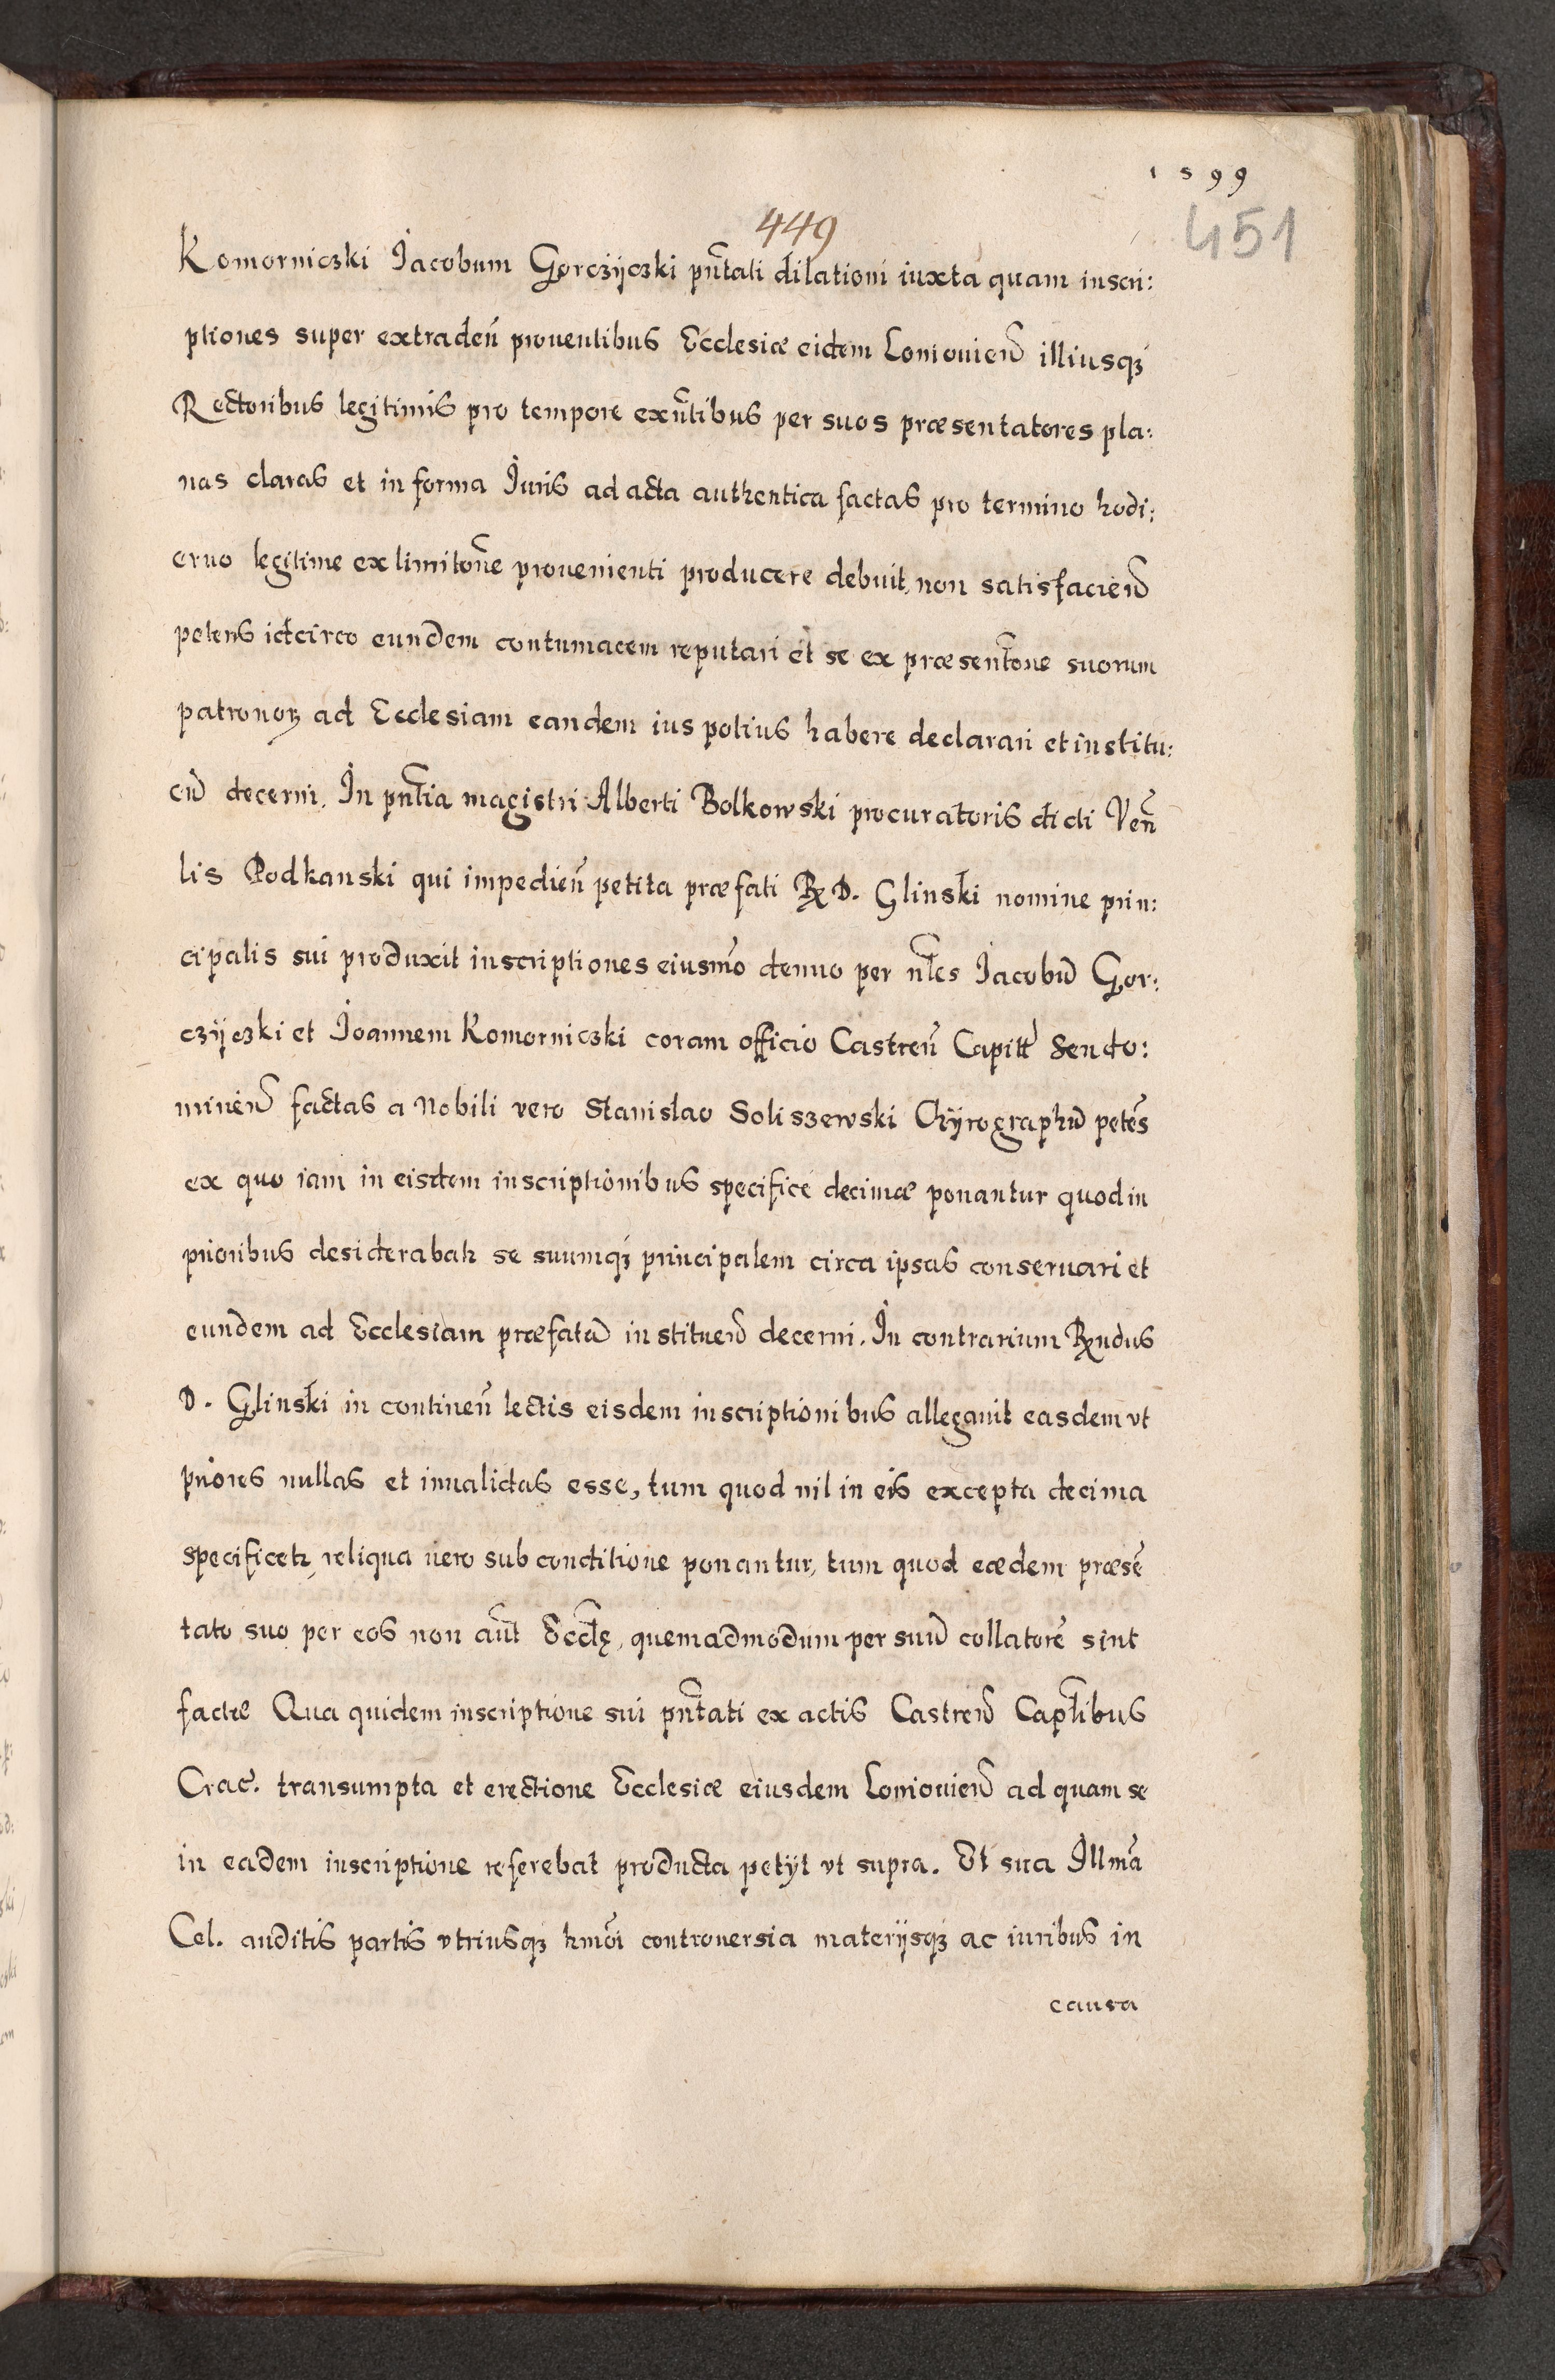 1599
449
451
Komorniczki Jacobum Gorczÿczki pñtati dilationi iuxta quam inscri:
ptiones super extradeñ prouentibus Ecclesiæ eidem Loniovieñ illiusqꝫ
Rectoribus legitimis pro tempore exñtibus per suos præsentatores pla:
nas claras et in forma Juris ad acta authentica factas pro termino hodi:
erno legitime ex limitoñe provenienti producere debuit, non satisfacieñ
petens idcirco eundem contumacem reputari et se ex præsentõne suorum
patronoꝝ ad Ecclesiam eandem ius potius habere declarari et institu:
eñ decerni. In pñtia magistri Alberti Bolkowski procuratoris dicti Veñ
lis Podkanski qui impedieñ petita præfati Rx D. Glinski nomine prin:
cipalis sui produxit inscriptiones eiusmõ denuo per ñles Jacobũ Gor:
czÿczki et Joannem Komorniczki coram officio Castreñ Capitł Sendo:
mirieñ factas a Nobili vero Stanislao Soliszewski Chÿrographũ petẽs
ex quo iam in eisdem inscriptionibus specificè decimæ ponantur quod in
prioribus desiderabatꝛ se suumqꝫ principalem circa ipsas conseruari et
eundem ad Ecclesiam præfatã instituеñ decerni. In contrarium Rxndus
D. Glinski in contineñ lectis eisdem inscriptionibus allegauit easdem vt
priores nullas et inualidas esse, tum quod nil in eis excepta decima
specificetꝛ, reliqua uero sub conditione ponantur, tum quod eædem præsẽ
tato suo per eos non aũt Eccłę, quemadmodum per suũ collatorẽ sint
factæ Qua quidem inscriptione sui pñtati ex actis Castreñ Captłibus
Crac. transumpta et erectione Ecclesiæ eiusdem Lonioviеñ ad quam se
in eadem inscriptione referebat producta petÿt vt supra. Et sua Illmã
Cel. auditis partis vtriusqꝫ hmõi controuersia materÿsqꝫ ac iuribus in
causa